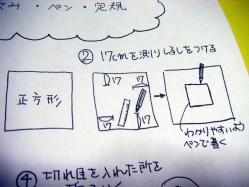 さみ・ペン・定規
② 17cmを測りしるしをつける
正方形
17
17
17
わかりやすいよう
ペンで書く
④ 切れ目を入れた所を